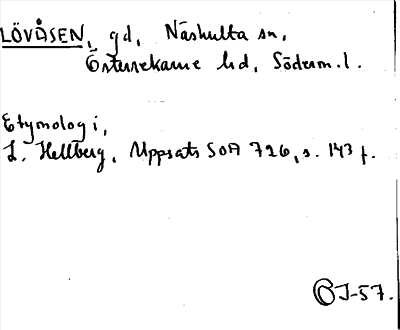 LÖVÅSEN, gd, Näshulta sn,
Österrekarne hd, Söderm. l.
Etymologi,
L. Hellberg, Uppsats SOA 726, s. 143 f.
J-57.